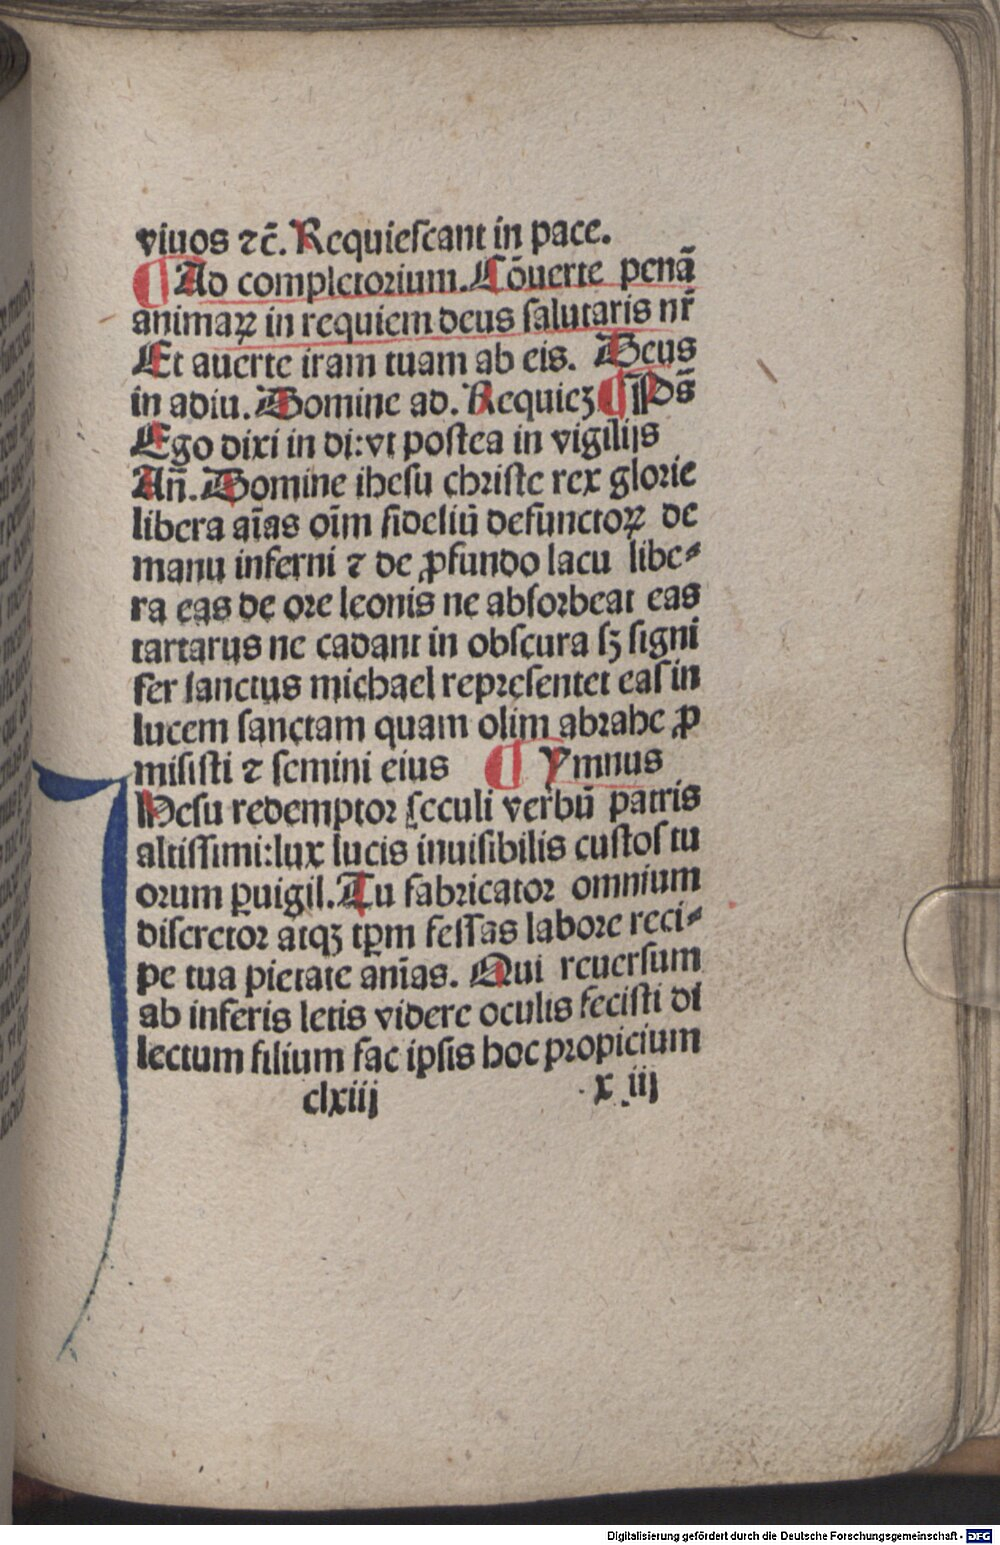 viuos ⁊c̄. Requieſcant in pace.
¶ Ad completorium. Cōuerte penā
animaꝝ in requiem deus ſalutaris nr̄
Et auerte iram tuam ab eis. Deus
in adiu. Domine ad. Requieꝫ ¶ Ps̄
Ego dixi in di: vt poſtea in vigilijs
An̄. Domine iheſu chriſte rex glorie
libera aīas oīm fideliū defunctoꝝ de
manu inferni ⁊ de ꝓfundo lacu libe⸗
ra eas de ore leonis ne abſorbeat eas
tartarus ne cadant in obſcura ſꝫ ſigni
fer ſanctus michael repreſentet eaſ in
lucem ſanctam quam olim abrahe ꝓ
miſiſti ⁊ ſemini eius ¶ Ymnus
Iheſu redemptor ſeculi verbū patris
altiſſimi: lux lucis inuiſibilis cuſtoſ tu
orum ꝑuigil. Tu fabricator omnium
diſcretor atqꝫ tꝑm feſſas labore reci⸗
pe tua pietate anīas. Qui reuerſum
ab inferis letis videre oculis feciſti di
lectum filium fac ipſis hoc propicium
clxiij x iij
Digitalisierung gefördert durch die Deutsche Forschungsgemeinschaft - DFG